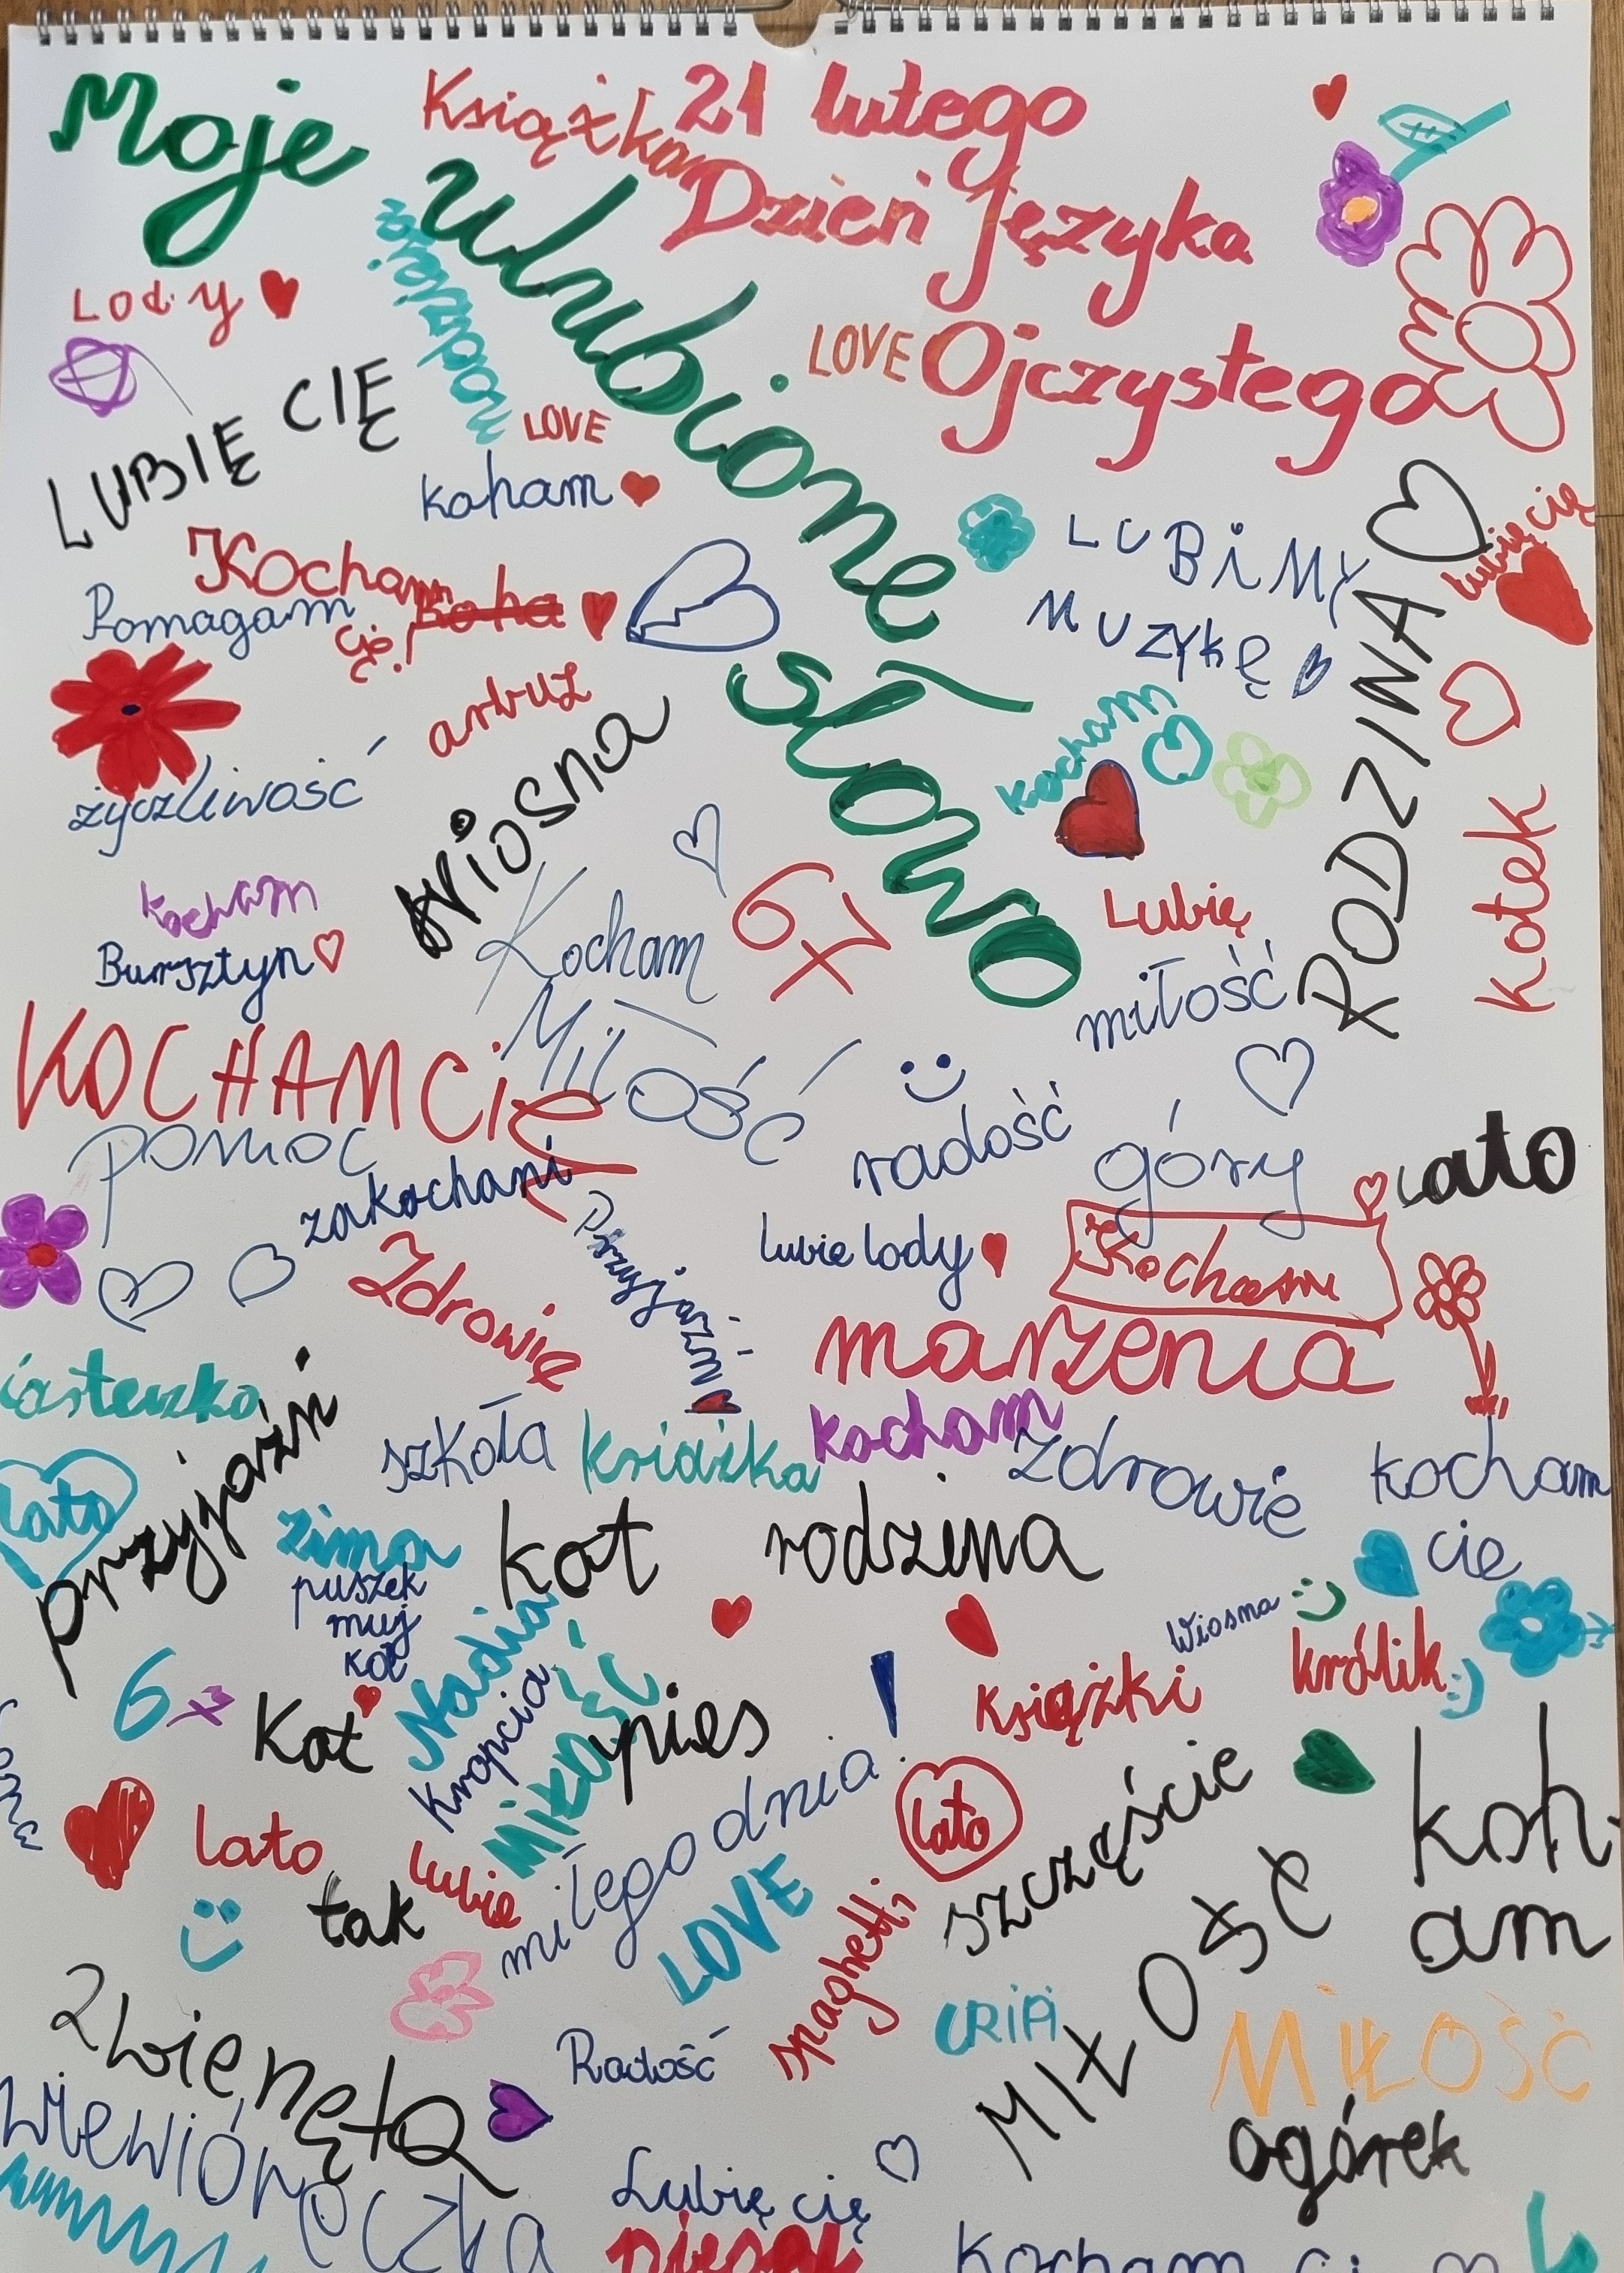 Moje
ulubione
słowo
Książka
21 lutego
Dzień Języka
Ojczystego
LOVE
Lody
LUBIĘ CIĘ
LOVE
koham
Kocham
Cię!
Pomagam
arbuz
życzliwość
wiosna
LUBiMY
MUZYKĘ
RODZINA
Lubię cię
kotek
kocham
kocham
Bursztyn
Kocham
Miłość
67
Lubię
miłość
KOCHAM CiĘ
pomoc
zakochani
radość
góry
Lato
Zdrowie
Przyjaźń
Lubię lody
Kocham
marzenia
iasteczko
przyjaźń
szkoła
książka
kocham
zdrowie
kocham
cie
lato
zima
puszek
muj
kot
kot
rodzina
Nadia
Kropcia
Miłość
Wiosna
królik
67
Kot
pies
Książki
miłego dnia!
lato
szczęście
koh-
am
lato
tak
Lubię
LOVE
spaghetti
MIŁOŚĆ
MiŁOŚĆ
ogórek
zwienęta
Radość
wiewióreczka
Lubię cię
piesek